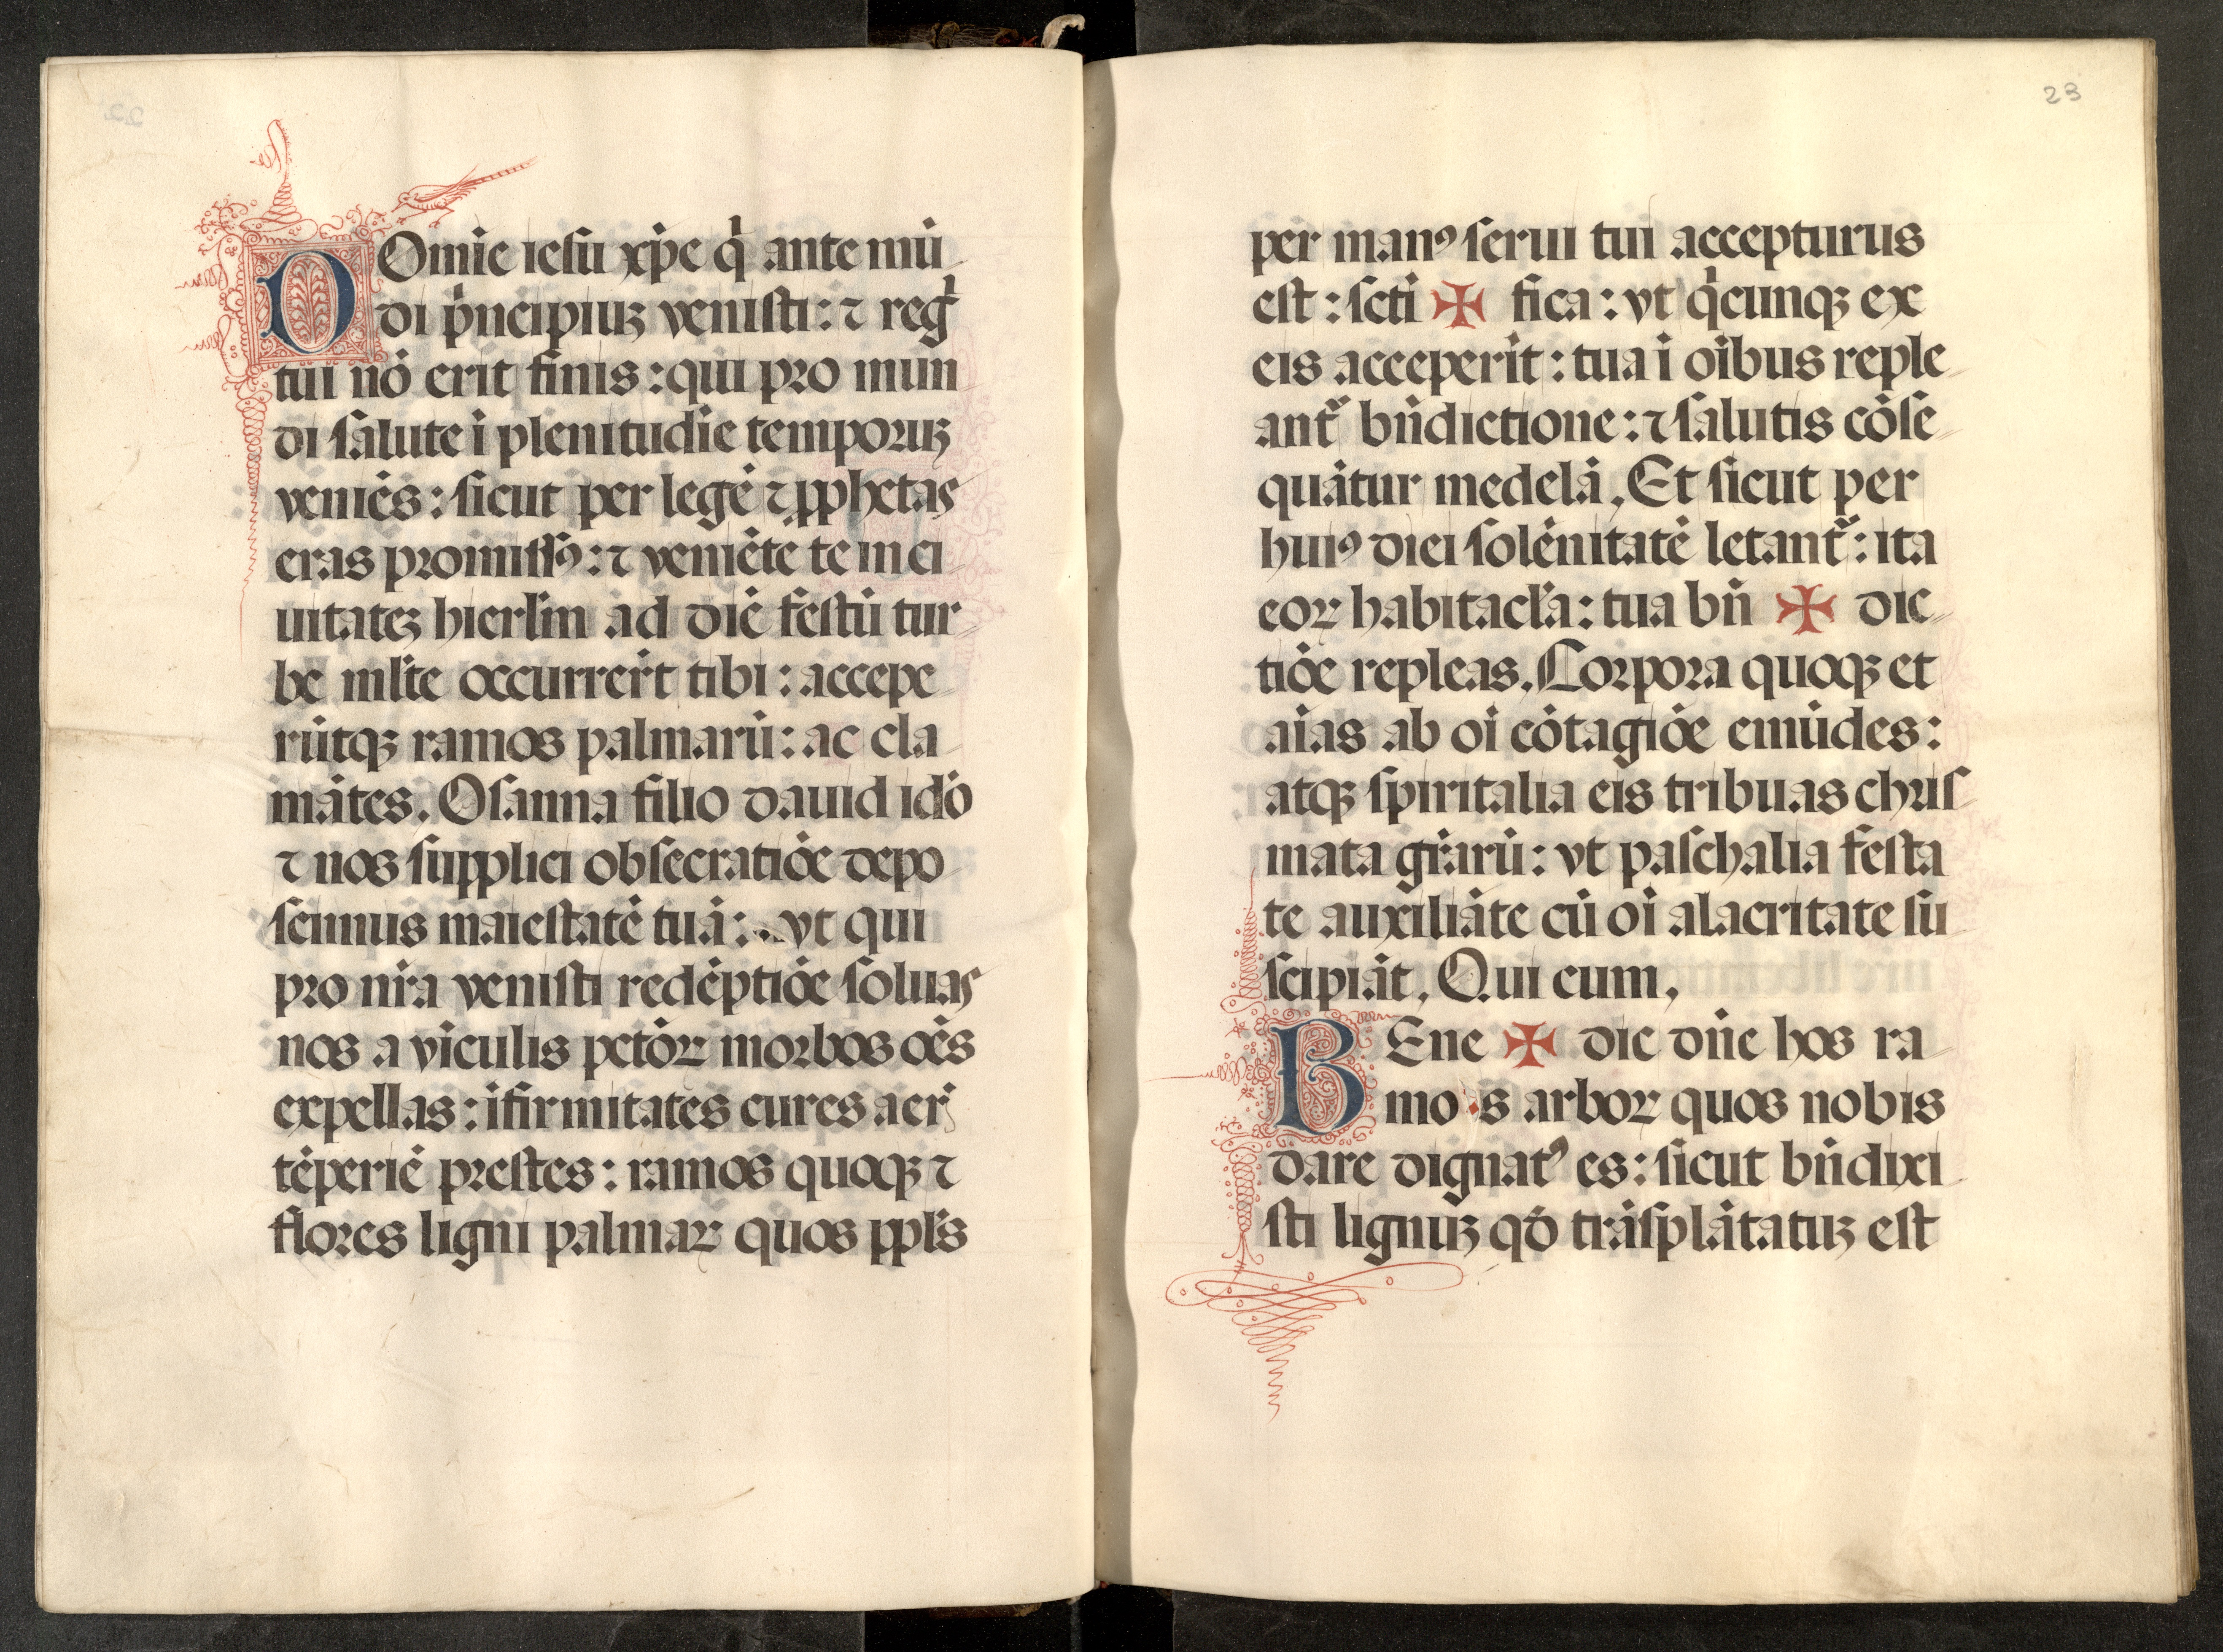 DOmīe iesu xp̄e q̇ ante mū
di pͥncipiuꝫ venisti: ⁊ reg̃
tui nō erit finis: qui pro mun
di salute ī plenitudīe temporuꝫ
veniēs: sicut per legē ⁊ ꝓphetas
eras promissꝰ: ⁊ veniēte te in ci
uitateꝫ hierl̄m ad diē festū tur
be ml̄te occurrer̄t tibi: accepe
rūtqꝫ ramos palmarū: ac cla
mātes. Osanna filio dauid idō
⁊ nos supplici obsecratiōe depo
scimus maiestatē tuā: vt qui
pro nr̄a venisti redēptiōe soluas
nos a vīculis pctōꝝ morbos oēs
expellas: īfirmitates cures aer̄
tēperiē prestes: ramos quoqꝫ ⁊
flores ligni palmaꝝ quos ppl̄s
23
per manꝰ serui tui accepturus
est: scti ✠ fica: vt qͥcunqꝫ ex
eis acceperīt: tua ī oībus reple
ant̃ bn̄dictione: ⁊ salutis cōse
quātur medelā. Et sicut per
huiꝰ diei solēnitatē letant̃: ita
eoꝝ habitacl̄a: tua bn̄ ✠ dic
tiōe repleas. Corpora quoqꝫ et
aīas ab oī cōtagiōe emūdes:
atqꝫ spiritalia eis tribuas chris
mata gr̄arū: vt paschalia festa
te auxiliāte cū oī alacritate su
scipiāt. Qui cum.
BEne ✠ dic dn̄e hos ra
mos arboꝝ quos nobis
dare dignatꝰ es: sicut bn̄dixi
sti lignuꝫ qō trāsplātatuꝫ est